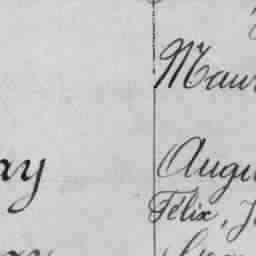 Maur
ay
Augu
Félix, J